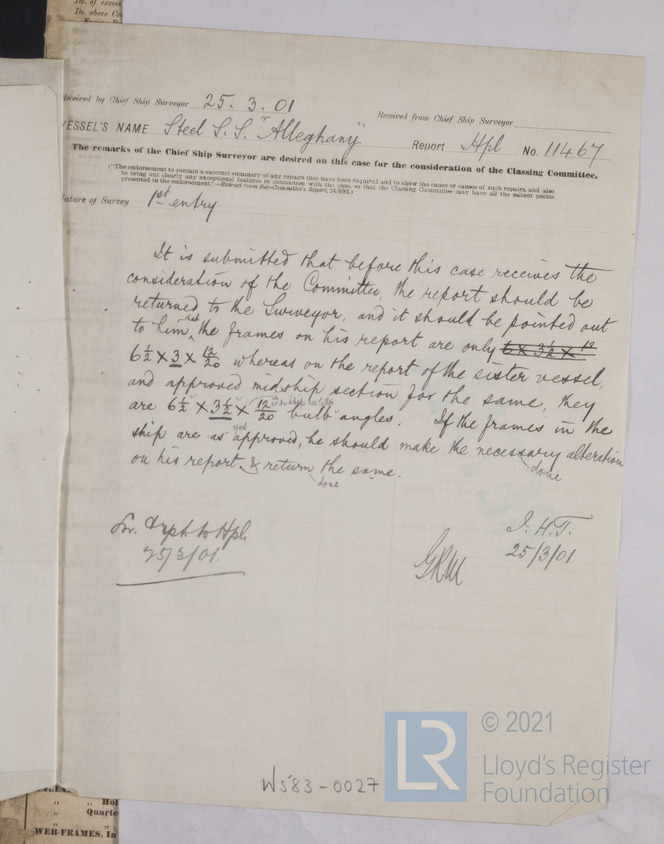 Do. of excess
Do. above
Received by Chief Ship Surveyor 25. 3. 01
Received from Chief Ship Surveyor
VESSEL'S NAME Steel S.S. "Alleghany" Report Hpl No. 11467
The remarks of the Chief Ship Surveyor are desired on this case for the consideration of the Classing Committee.
("The endorsement to contain a succinct summary of any repairs that have been required and to show the cause or causes of such repairs, and also
to bring out clearly any exceptional features in connection with the case, so that the Classing Committee may have all the salient points
presented in the endorsement."—Extract from Sub-Committee's Report,
Nature of Survey 1st entry
It is submitted that before this case receives the
consideration of the Committee, the report should be
returned to the Surveyor, and it should be pointed out
to him that the frames on his report are only 6 x 3½ x 12
6½ x 3 x 12/20 whereas on the report of the sister vessel,
and approved midship section for the same, they
are 6½ x 3½ x 12/20 bulb angles. If the frames in the
ship are as approved, he should make the necessary alteration
done
on his report & return the same.
done
25/3/01.
J.H.T.
25/3/01
GRM
W583-0027
LR
© 2021
Lloyd's Register
Foundation
" " Hol
" Quarte
WEB-FRAMES, In